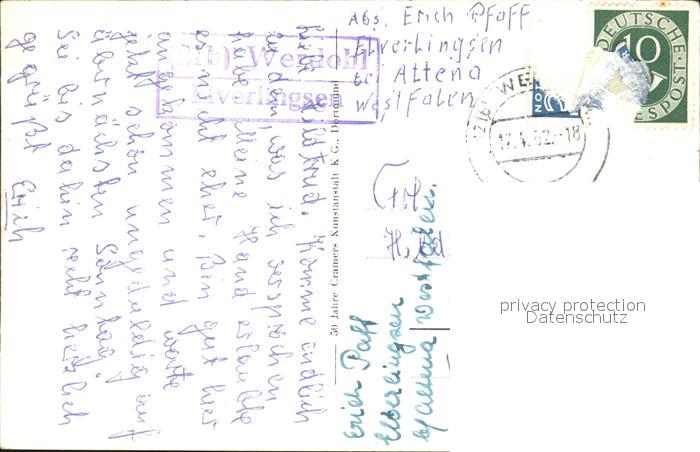 Abs. Erich Pfaff
Elverlingsen
bei Altena
Westfalen
(21b) Werdohl
Elverlingsen
DEUTSCHE
10
17.4.52.-18
Komme endlich
zu dem, was ich versprochen
habe. Meine Hand erlaubte
es nicht eher. Bin gut hier
angekommen und warte
jetzt schon ungeduldig auf
übernächsten Sonntag.
Sei bis dahin recht herzlich
gegrüßt Erich
50 Jahre Cramers Kunstanstalt K.G., Dortmund
Frl.
Erich Paff
Elverlingsen
Altena Westfalen.
privacy protection
Datenschutz